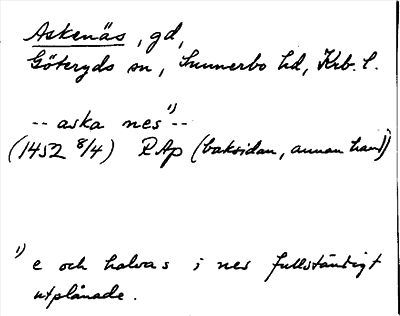 Askenäs, gd,
Göteryds sn, Sunnerbo hd, Krb. l.
-- aska nes¹⁾ --
(1452 8/4) RAp (baksidan, annan hand)
¹⁾ e och halva s i nes fullständigt
utplånade.